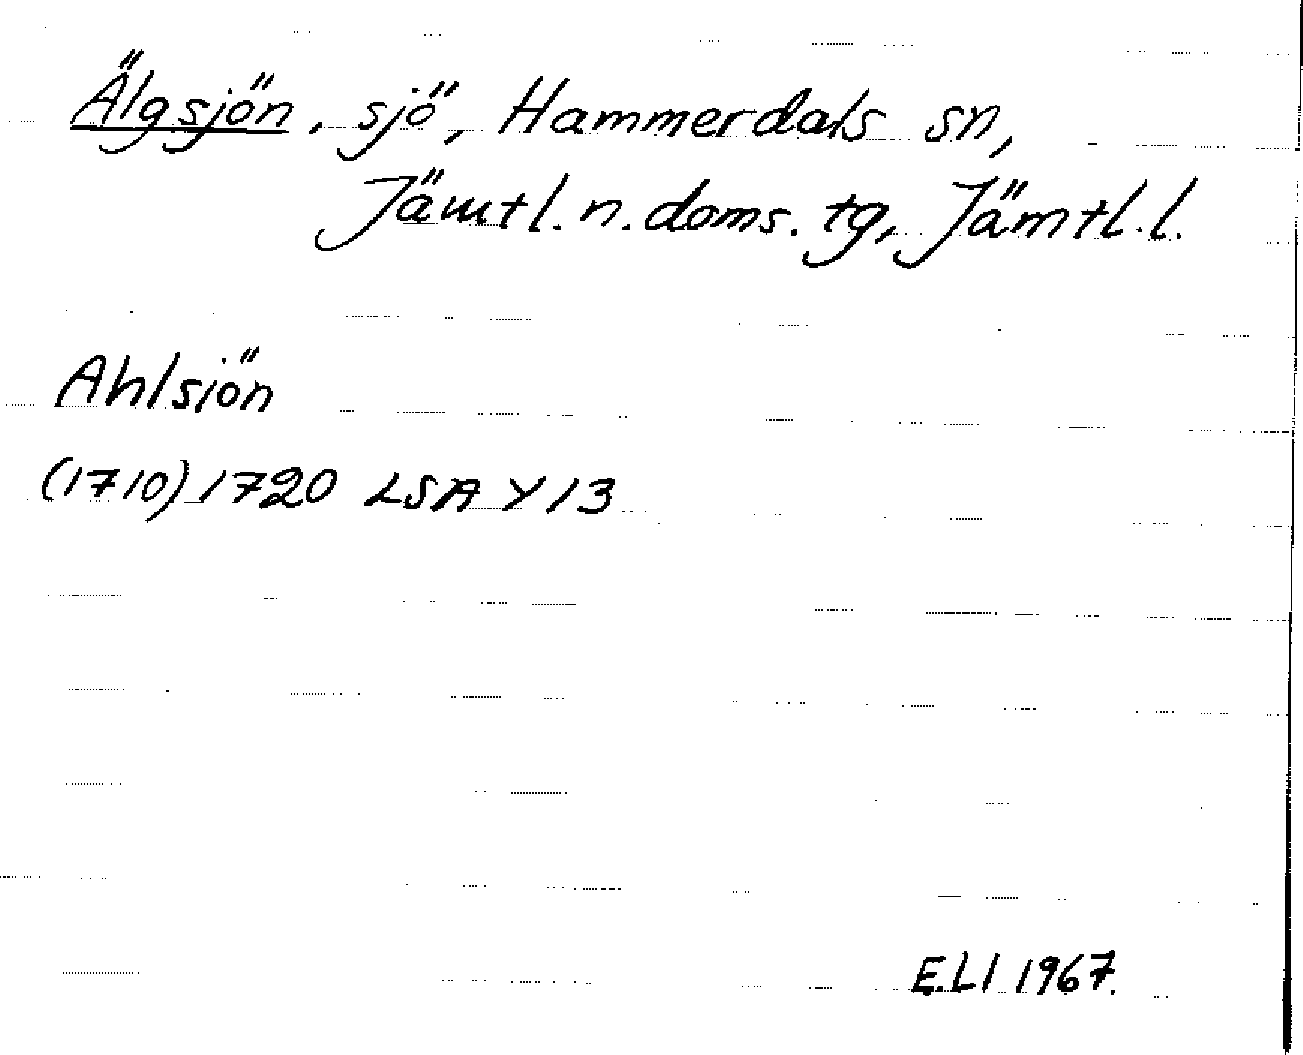 Älgsjön, sjö, Hammerdals sn,
Jämtl. n. doms. tg, Jämtl. l.
Ahlsiön
(1710) 1720 LSA Y 13
E.LI 1967.